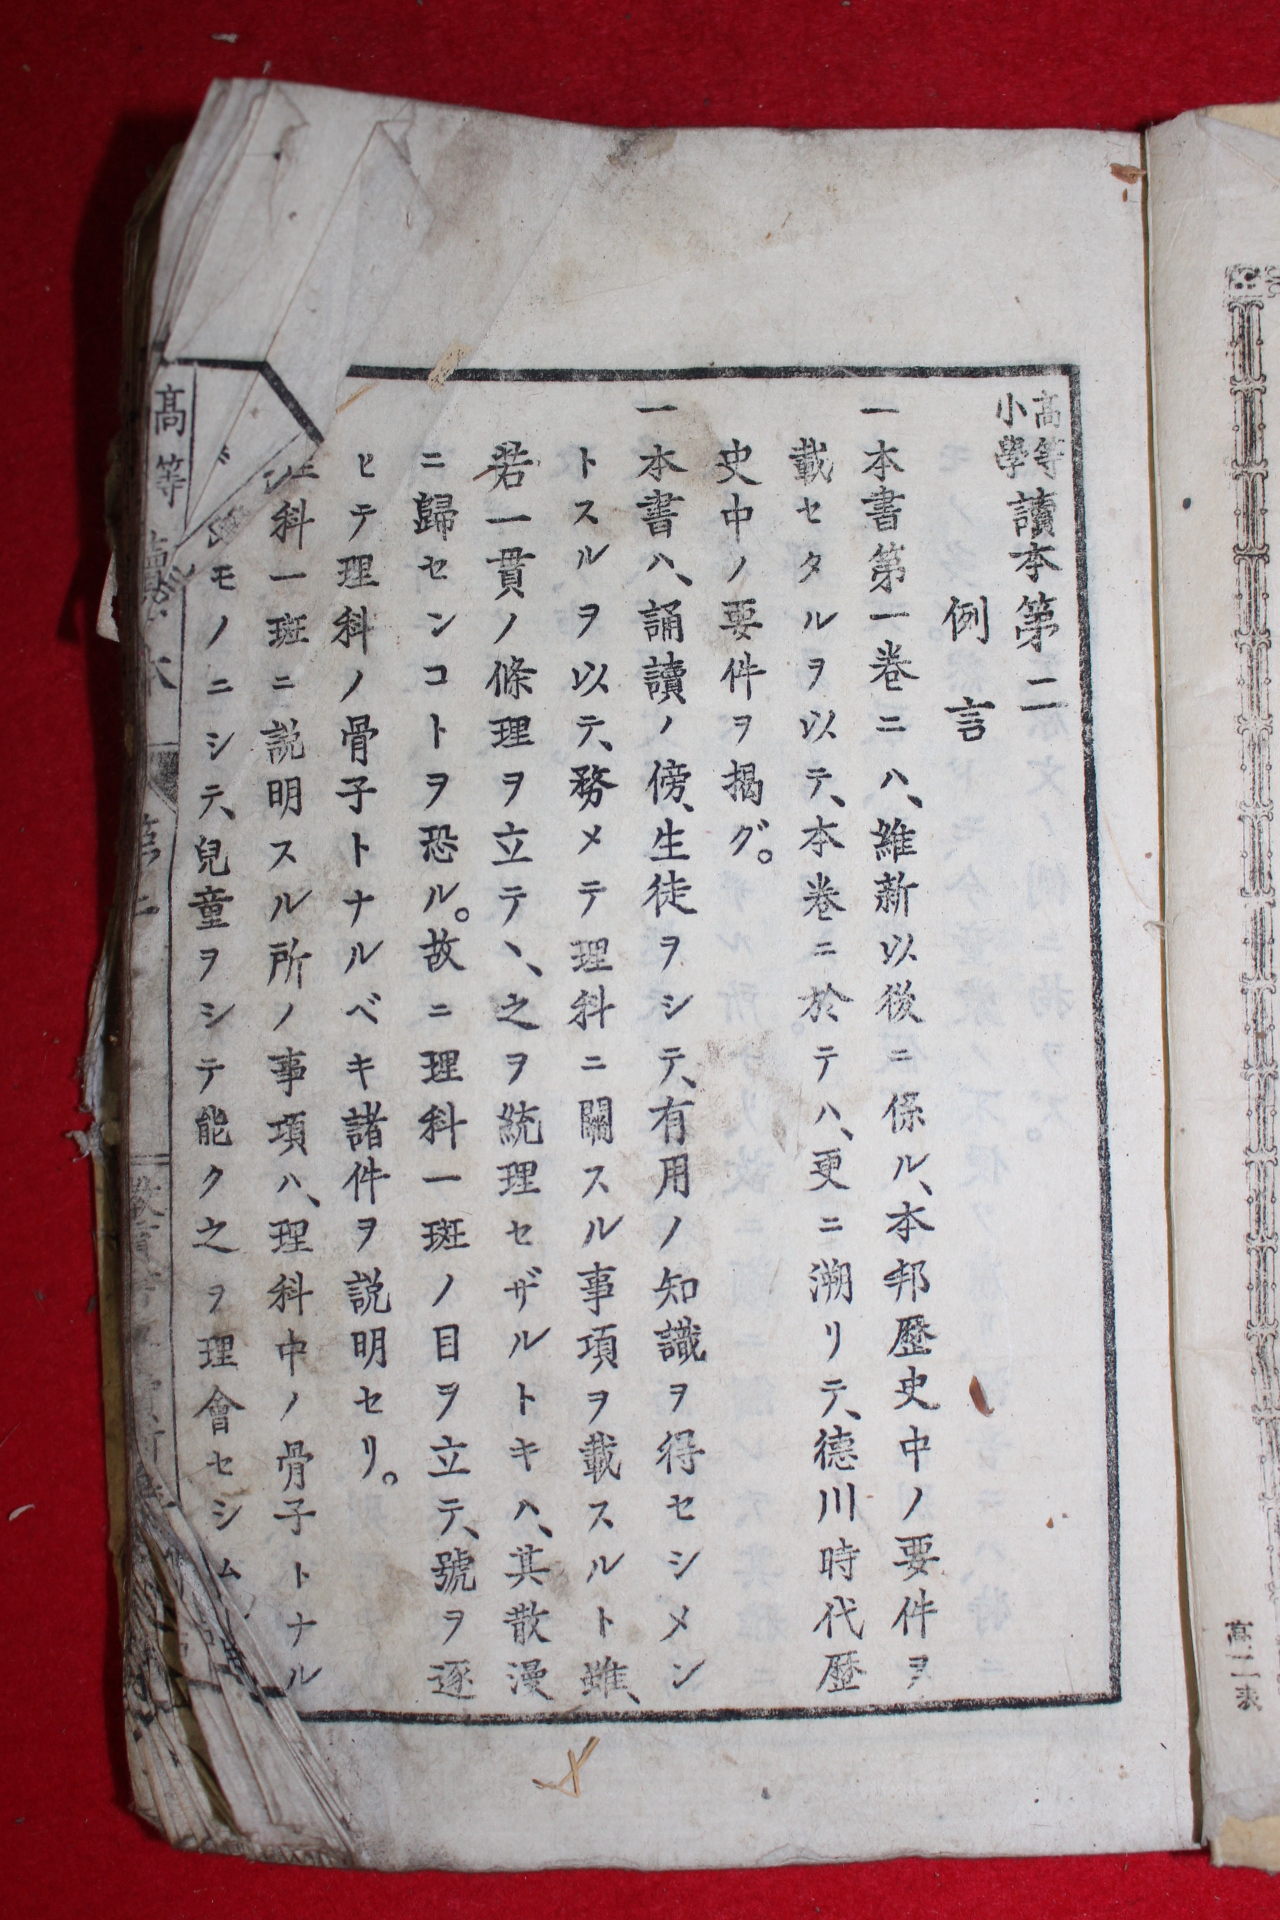 高等小學讀本第二
例言
一本書第一巻ニハ、維新以後ニ係ル、本邦歷史中ノ要件ヲ
載セタルヲ以テ、本巻ニ於テハ、更ニ溯リテ、德川時代歷
史中ノ要件ヲ揭グ。
一本書ハ、誦讀ノ傍、生徒ヲシテ、有用ノ知識ヲ得セシメン
トスルヲ以テ、務メテ理科ニ關スル事項ヲ載スルト雖、
若一貫ノ條理ヲ立テヽ、之ヲ統理セザルトキハ、其散漫
ニ歸センコトヲ恐ル。故ニ理科一班ノ目ヲ立テ、號ヲ逐
ヒテ理科ノ骨子トナルベキ諸件ヲ説明セリ。
科一班ニ説明スル所ノ事項ハ、理科中ノ骨子トナル
モノニシテ、兒童ヲシテ能ク之ヲ理會セシム
高等讀本 第二
高二表